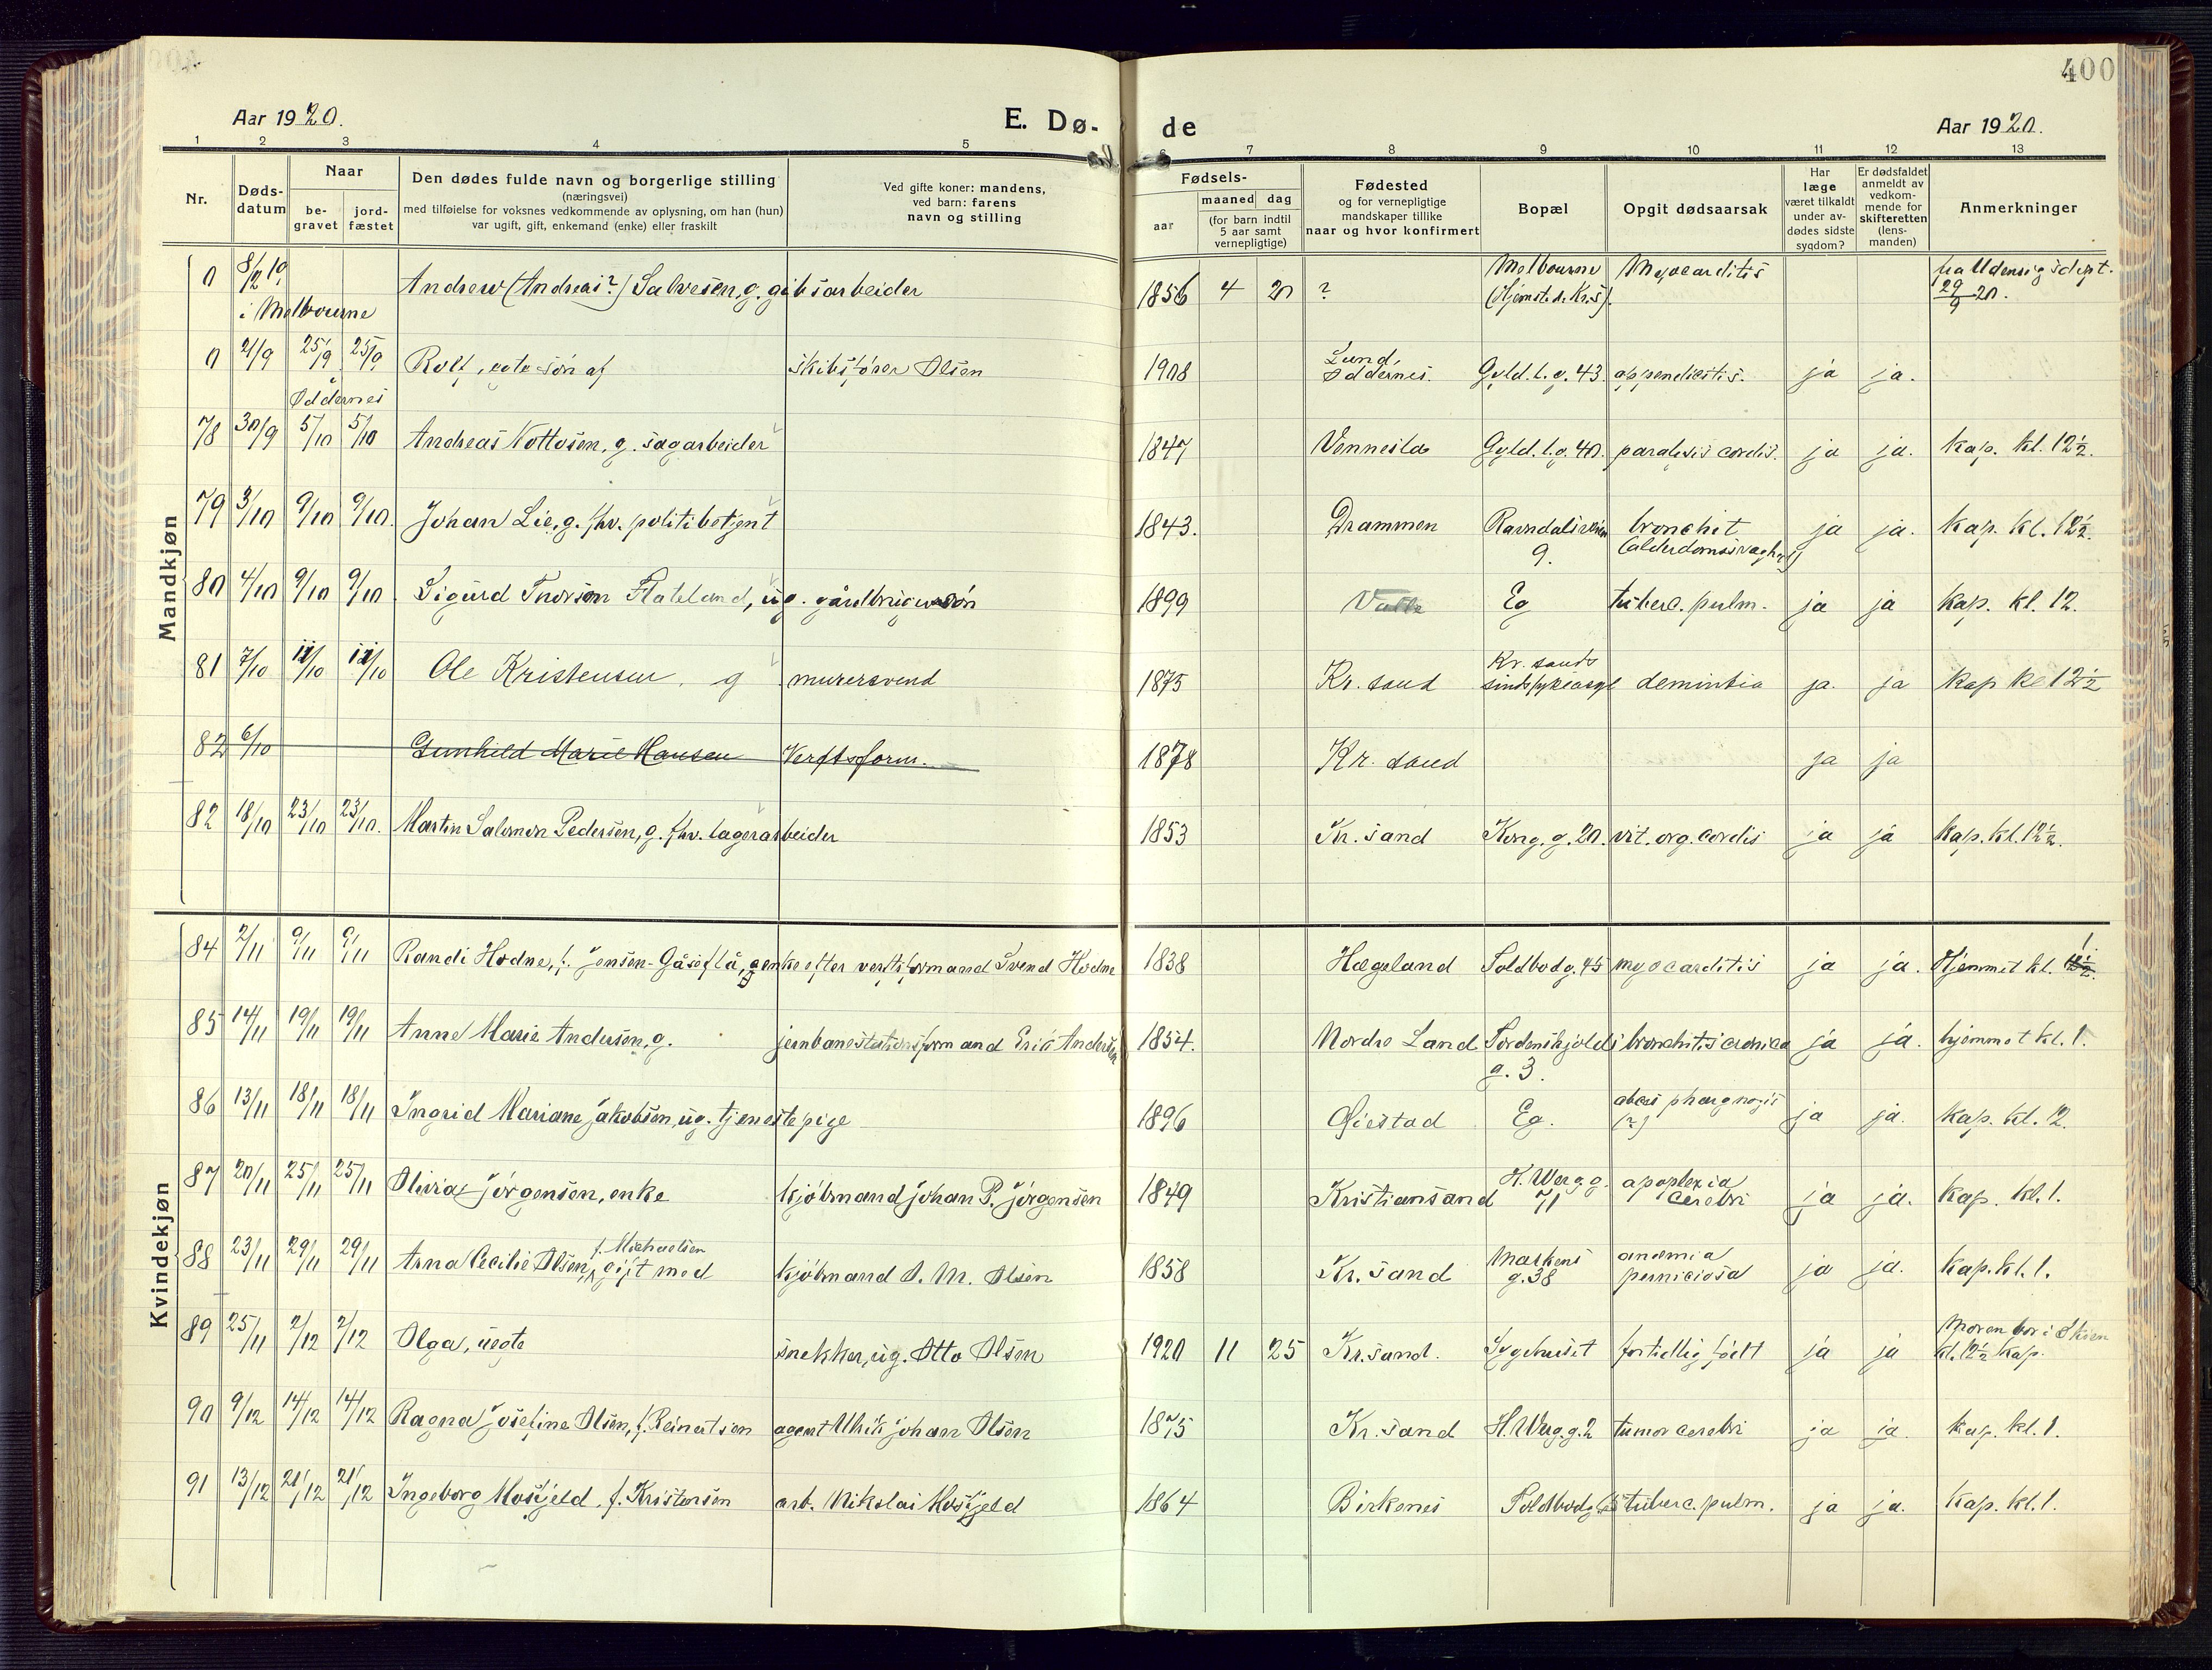 400
Aar 1920.
E. Dø-
de
Aar 1920.
1 2 3 4 5 6 7 8 9 10 11 12 13
Nr.
Døds-
datum
Naar
be-
gravet
jord-
fæstet
Den dødes fulde navn og borgerlige stilling
(næringsvei)
med tilføielse for voksnes vedkommende av oplysning, om han (hun)
var ugift, gift, enkemand (enke) eller fraskilt
Ved gifte koner: mandens,
ved barn: farens
navn og stilling
Fødsels-
aar
maaned dag
(for barn indtil
5 aar samt
vernepligtige)
Fødested
og for vernepligtige
mandskaper tillike
naar og hvor konfirmert
Bopæl
Opgit dødsaarsak
Har
læge
været tilkaldt
under av-
dødes sidste
sygdom?
Er dødsfaldet
anmeldt av
vedkom-
mende for
skifteretten
(lens-
manden)
Anmerkninger
Mandkjøn
0 8/12 19 i Melbourne Andrew (Andreas?) Salvesen, g. gibsarbeider 1856 4 20 ? Melbourne (Hjemsted. Kr.s). Myocarditis fra Udenrigsdept. 29/9 20.
0 21/9 25/9 25/9 Oddernes Rolf, egte søn af skibsfører Olsen 1908 Lund, Oddernes. Gyld. l. g. 43 appendicitis. ja ja.
78 30/9 5/10 5/10 Andreas Nottosen, g. sagarbeider 1847 Vennesla Gyld. l. g. 40. paralysis cordis. ja ja. kap. kl. 12½.
79 3/10 9/10 9/10. Johan Lie, g. fhv. politibetjent 1843. Drammen Ravndalsveien 9. bronchit (alderdomssvaghed) ja ja. kap. kl. 12½.
80 4/10 9/10 9/10 Sigurd Thorson Flateland, ug. gårdbrugersøn 1899 Valle Eg tuberc. pulm. ja ja kap. kl. 12.
81 7/10 12/10 12/10 Ole Kristensen, g murersvend 1875 Kr. sand Kr. sands sindssykeasyl demintia ja. ja kap kl 12½
82 6/10 Gunhild Marie Hansen Verftsform. 1878 Kr. sand ja ja
82 18/10 23/10 23/10. Martin Salomon Pedersen, g. fhv. lagerarbeider 1853 Kr. sand Kong. g. 20. vit. org. cordis ja ja kap. kl. 12½.
Kvindekjøn
84 2/11 9/11 9/11 Randi Hodne, f. Jensen-Gåseflå, enke efter verftsformand Svend Hodne 1838 Hægeland Toldbodg. 45 myocarditis ja ja. Hjemmet kl. 1
85 14/11 19/11 19/11 Anne Marie Andersen, g. jernbanestationsformand Erik Andersen 1854. Nordre Land Tordenskjolds g. 3. bronchitis cronica ja ja. hjemmet kl. 1.
86 13/11 18/11 18/11 Ingrid Mariane Jakobsen, ug. tjenestepige 1896 Øiestad Eg. (?) ja ja. kap. kl. 12.
87 20/11 25/11 25/11 Olivia Jørgensen, enke kjøbmand Johan P. Jørgensen 1849 Kristiansand H. Werg. g. 71 apoplexia cerebri ja ja. kap. kl. 1.
88 23/11 29/11 29/11 Anna Cecilie Olsen, f. Michaelsen gift med kjøbmand O. M. Olsen 1858 Kr. sand Markens g. 38 anæmia perniciosa ja ja. kap. kl. 1.
89 25/11 2/12 2/12 Olga, uegte snekker, ug. Otto Olsen 1920 11 25 Kr. sand. Sygehuset fortidlig født ja ja Moren bor i Skien kl. 12½ kap.
90 9/12 14/12 14/12 Ragna Josefine Olsen, f. Reinertsen agent Ulrik Johan Olsen 1875 Kr. sand H. Werg. g. 2 tumor cerebri ja ja. kap. kl. 1.
91 13/12 21/12 21/12 Ingeborg Mosfjeld, f. Kristensen arb. Nikolai Mosfjeld 1864 Birkenes Toldbodg. tuberc. pulm. ja ja. kap. kl. 1.